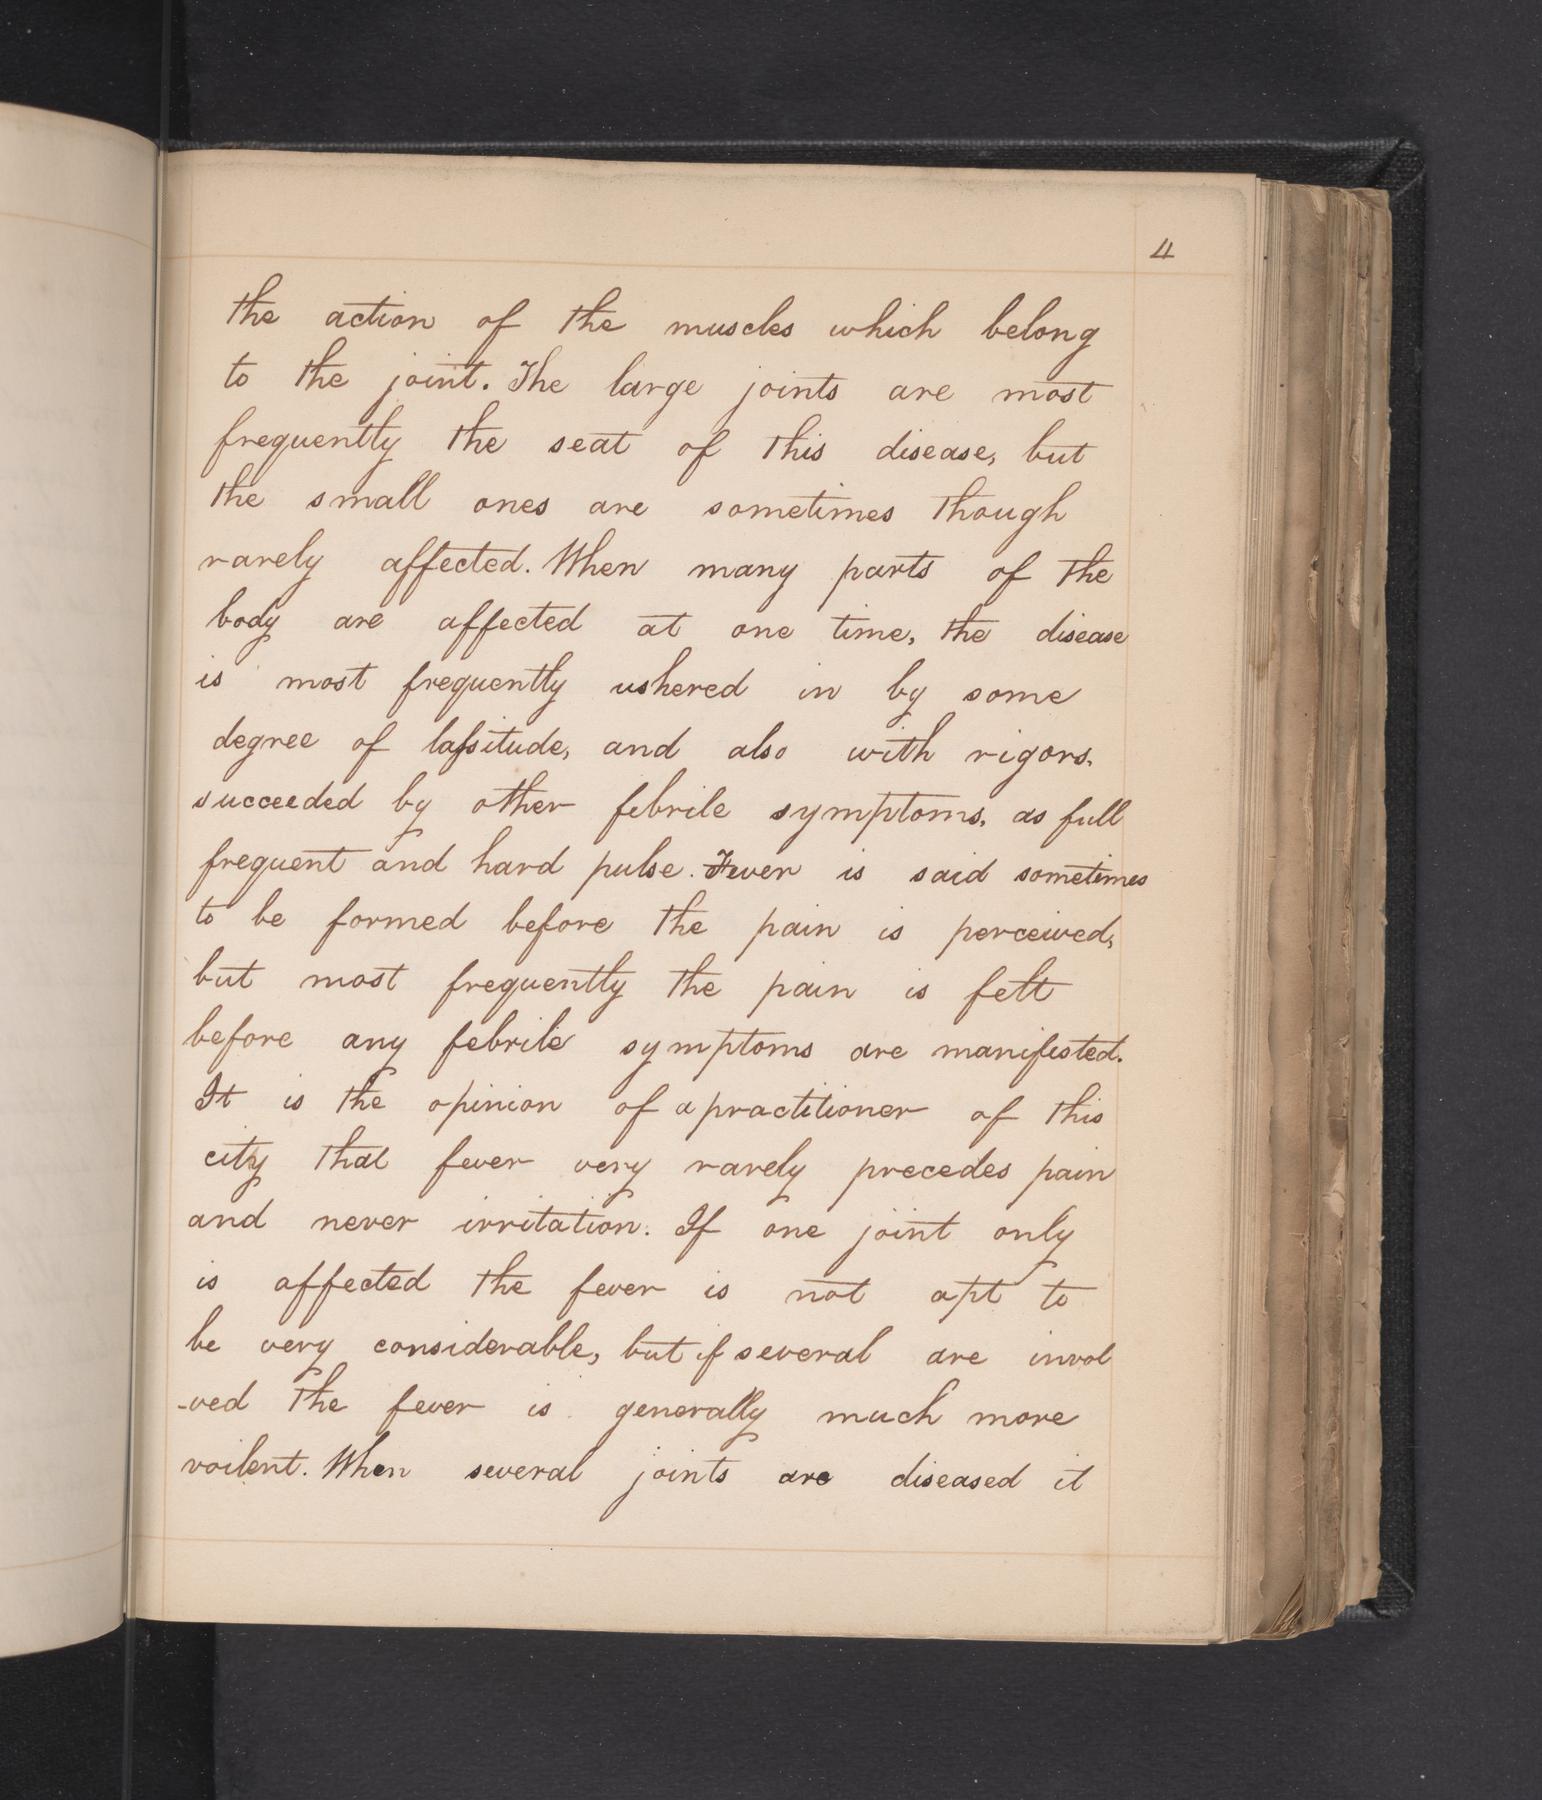 4
the action of the muscles which belong
to the joint. The large joints are most
frequently the seat of this disease, but
the small ones are sometimes though
rarely affected. When many parts of the
body are affected at one time, the disease
is most frequently ushered in by some
degree of laſsitude, and also with rigors.
succeeded by other febrile symptoms. as full
frequent and hard pulse. Fever is said sometimes
to be formed before the pain is perceived,
but most frequently the pain is felt
before any febrile symptoms are manifested.
It is the opinion of a practitioner of this
city that fever very rarely precedes pain
and never irritation. If one joint only
is affected the fever is not apt to
be very considerable, but if several are invol
-ved the fever is generally much more
voilent. When several joints are diseased it